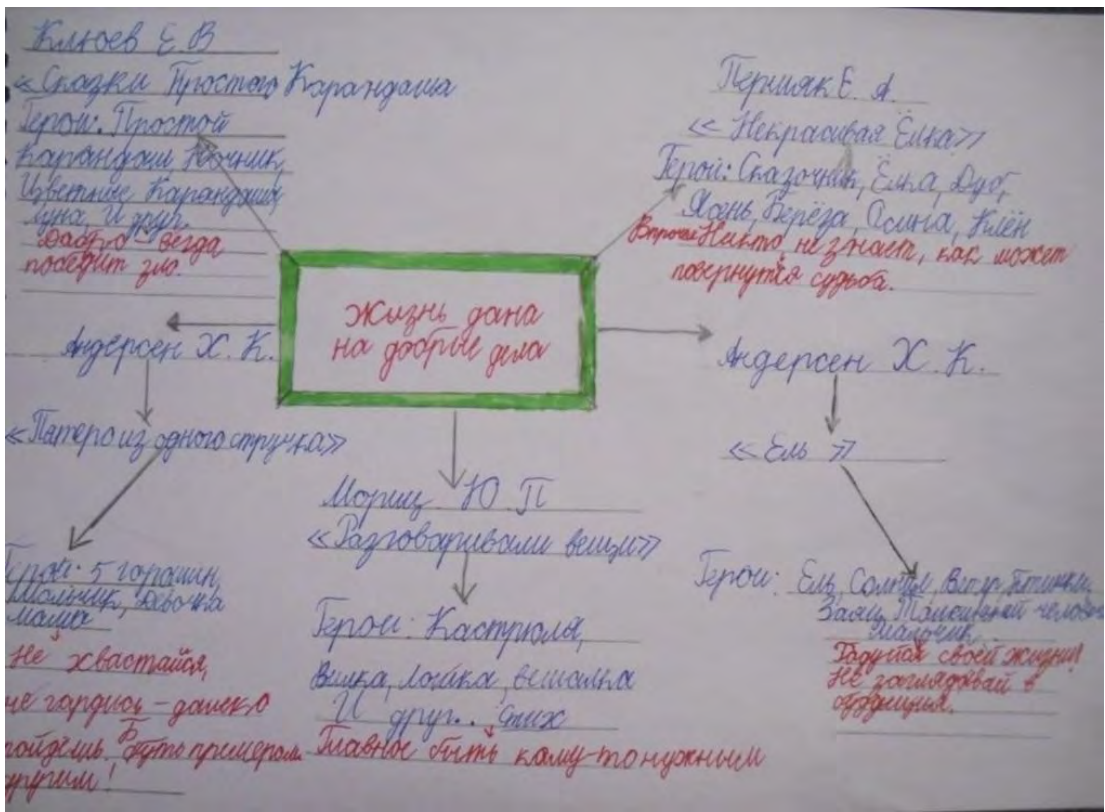 Клюев Е.В
«Сказки Простого Карандаша
Герои: Простой
Карандаш, Ночник,
Цветные Карандаши,
луна, И друг.
Дабро - везда
победит зло.
Пермяк Е. А.
«Некрасивая Ёлка»
Герой: Сказочник, Ёлка, Дуб,
Ясень, Берёза, Осина, Клён
Впрочем Никто, не знает, как может
повернутся судьба.
Жизнь дана
на добрые дела
Андерсен Х. К.
«Пятеро из одного стручка»
Герой: 5 горошин,
Мальчик, Девочка
мама
Не хвастайся,
не гордись - далеко
пойдёшь. Будь примером
другим!
Мориц Ю П
«Разговаривали вещи»
Герои: Кастрюля,
Вилка, ложка, вешалка
И друг.. Стих
Главное быть кому-то нужным
Андерсен Х. К.
«Ель»
Герои: Ель, Солнце, Ветер, Птички,
Заяц, человек
Мальчик
Радуйся своей жизни!
Не заглядывай в